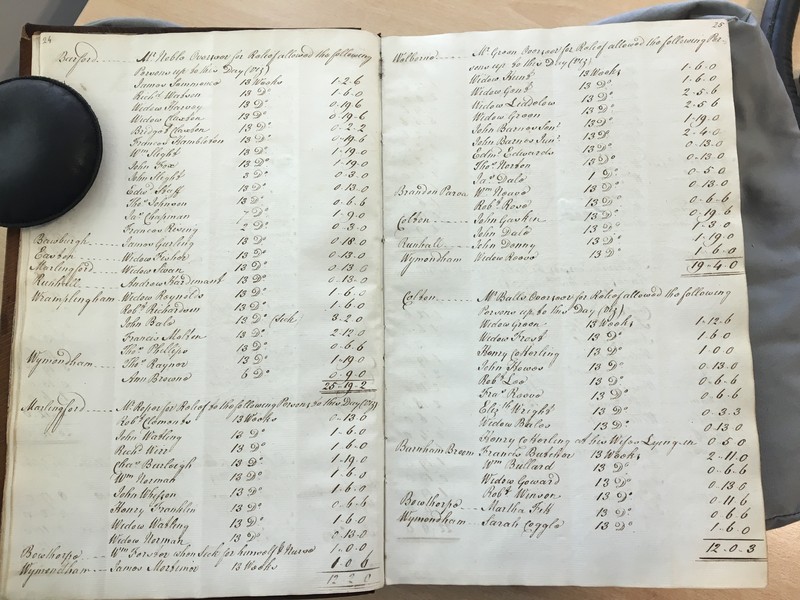 24
Barford Mr. Noble Overseer for Relief allowed the following
Persons up to this Day (Viz)
James Simmonds 13 Weeks 1-2-6
Richd. Watson 13 Do 1-6-0
Widow Harvey 13 Do 0-19-6
Widow Claxton 13 Do 0-19-6
Bridget Claxton 13 Do 0-2-2
Frances Hambleton 13 Do 0-19-6
Wm. Slight 13 Do 1-19-0
John Fox 13 Do 1-19-0
John Slight 3 Do 0-3-0
Edwd. Skeff 13 Do 0-13-0
Thos. Johnson 13 Do 0-6-6
Jas. Chapman 7 Do 1-9-0
Frances Rising 2 Do 0-3-0
Bawburgh James Gurling 13 Do 0-18-0
Easton Widow Fisher 13 Do 0-13-0
Marlingford Widow Swan 13 Do 0-13-0
Runhall Andrew Hardiment 13 Do 0-13-0
Wramplingham Widow Reynolds 13 Do 1-6-0
Robt. Richardson 13 Do 1-6-0
John Bale 13 Do (Sick) 3-2-0
Francis Molten 13 Do 2-12-0
Thos. Phillips 13 Do 0-6-6
Wymondham Thos. Raynor 13 Do 1-19-0
Ann Browne 6 Do 0-9-0
25-19-2
Marlingford Mr. for Relief to the following Persons to this Day (Viz)
Robt. Clements 13 Weeks 0-13-6
John Watling 13 Do 1-6-0
Richd. 13 Do 1-6-0
Chas. Burleigh 13 Do 1-19-0
Wm. Norman 13 Do 1-6-0
John 13 Do 1-6-0
Henry Franklin 13 Do 0-6-6
Widow Watling 13 Do 1-6-0
Widow Norman 13 Do 0-13-0
Bowthorpe Wm. Forster when Sick for himself & Nurse 1-0-0
Wymondham James Mortimer 13 Weeks 1-0-6
12-2-0
25
Welborne Mr. Green Overseer for Relief allowed the following Per-
sons up to this Day (Viz)
Widow Hunt 13 Weeks 1-6-0
Widow Gent 13 Do 1-6-0
Widow Liddelow 13 Do 2-5-6
Widow Green 13 Do 2-5-6
John Barnes Senr. 13 Do 1-19-0
John Barnes Junr. 13 Do 2-4-0
Edwd. Edwards 13 Do 0-13-0
Thos. Norton 13 Do 0-13-0
Jas. Dale 1 Do 0-5-0
Brandon Parva Wm. Neave 13 Do 0-13-0
Robt. Rose 13 Do 0-6-6
Colton John Gaskin 13 Do 0-19-6
John Dale 13 Do 1-3-0
Runhall John Denny 13 Do 1-19-0
Wymondham Widow Reeve 13 Do 1-6-0
19-4-0
Colton Mr. Balls Overseer for Relief allowed the following
Persons up to this Day (Viz)
Widow Green 13 Weeks 1-12-6
Widow Frost 13 Do 1-6-0
Henry Cottering 13 Do 1-0-0
John Howes 13 Do 0-13-0
Robt. Lee 13 Do 0-6-6
Fras. Reeve 13 Do 0-6-6
Elizth. Wright 13 Do 0-3-3
Widow Bales 13 Do 0-13-0
Henry Cottering at his Wifes Lying-in 0-5-0
Barnham Broom Francis Butcher 13 Weeks 2-11-0
Wm. Bullard 13 Do 0-6-6
Widow Goward 13 Do 0-13-0
Robt. Winson 13 Do 0-11-6
Bowthorpe Martha Felt 13 Do 0-6-6
Wymondham Sarah Coggle 13 Do 1-6-0
12-0-3